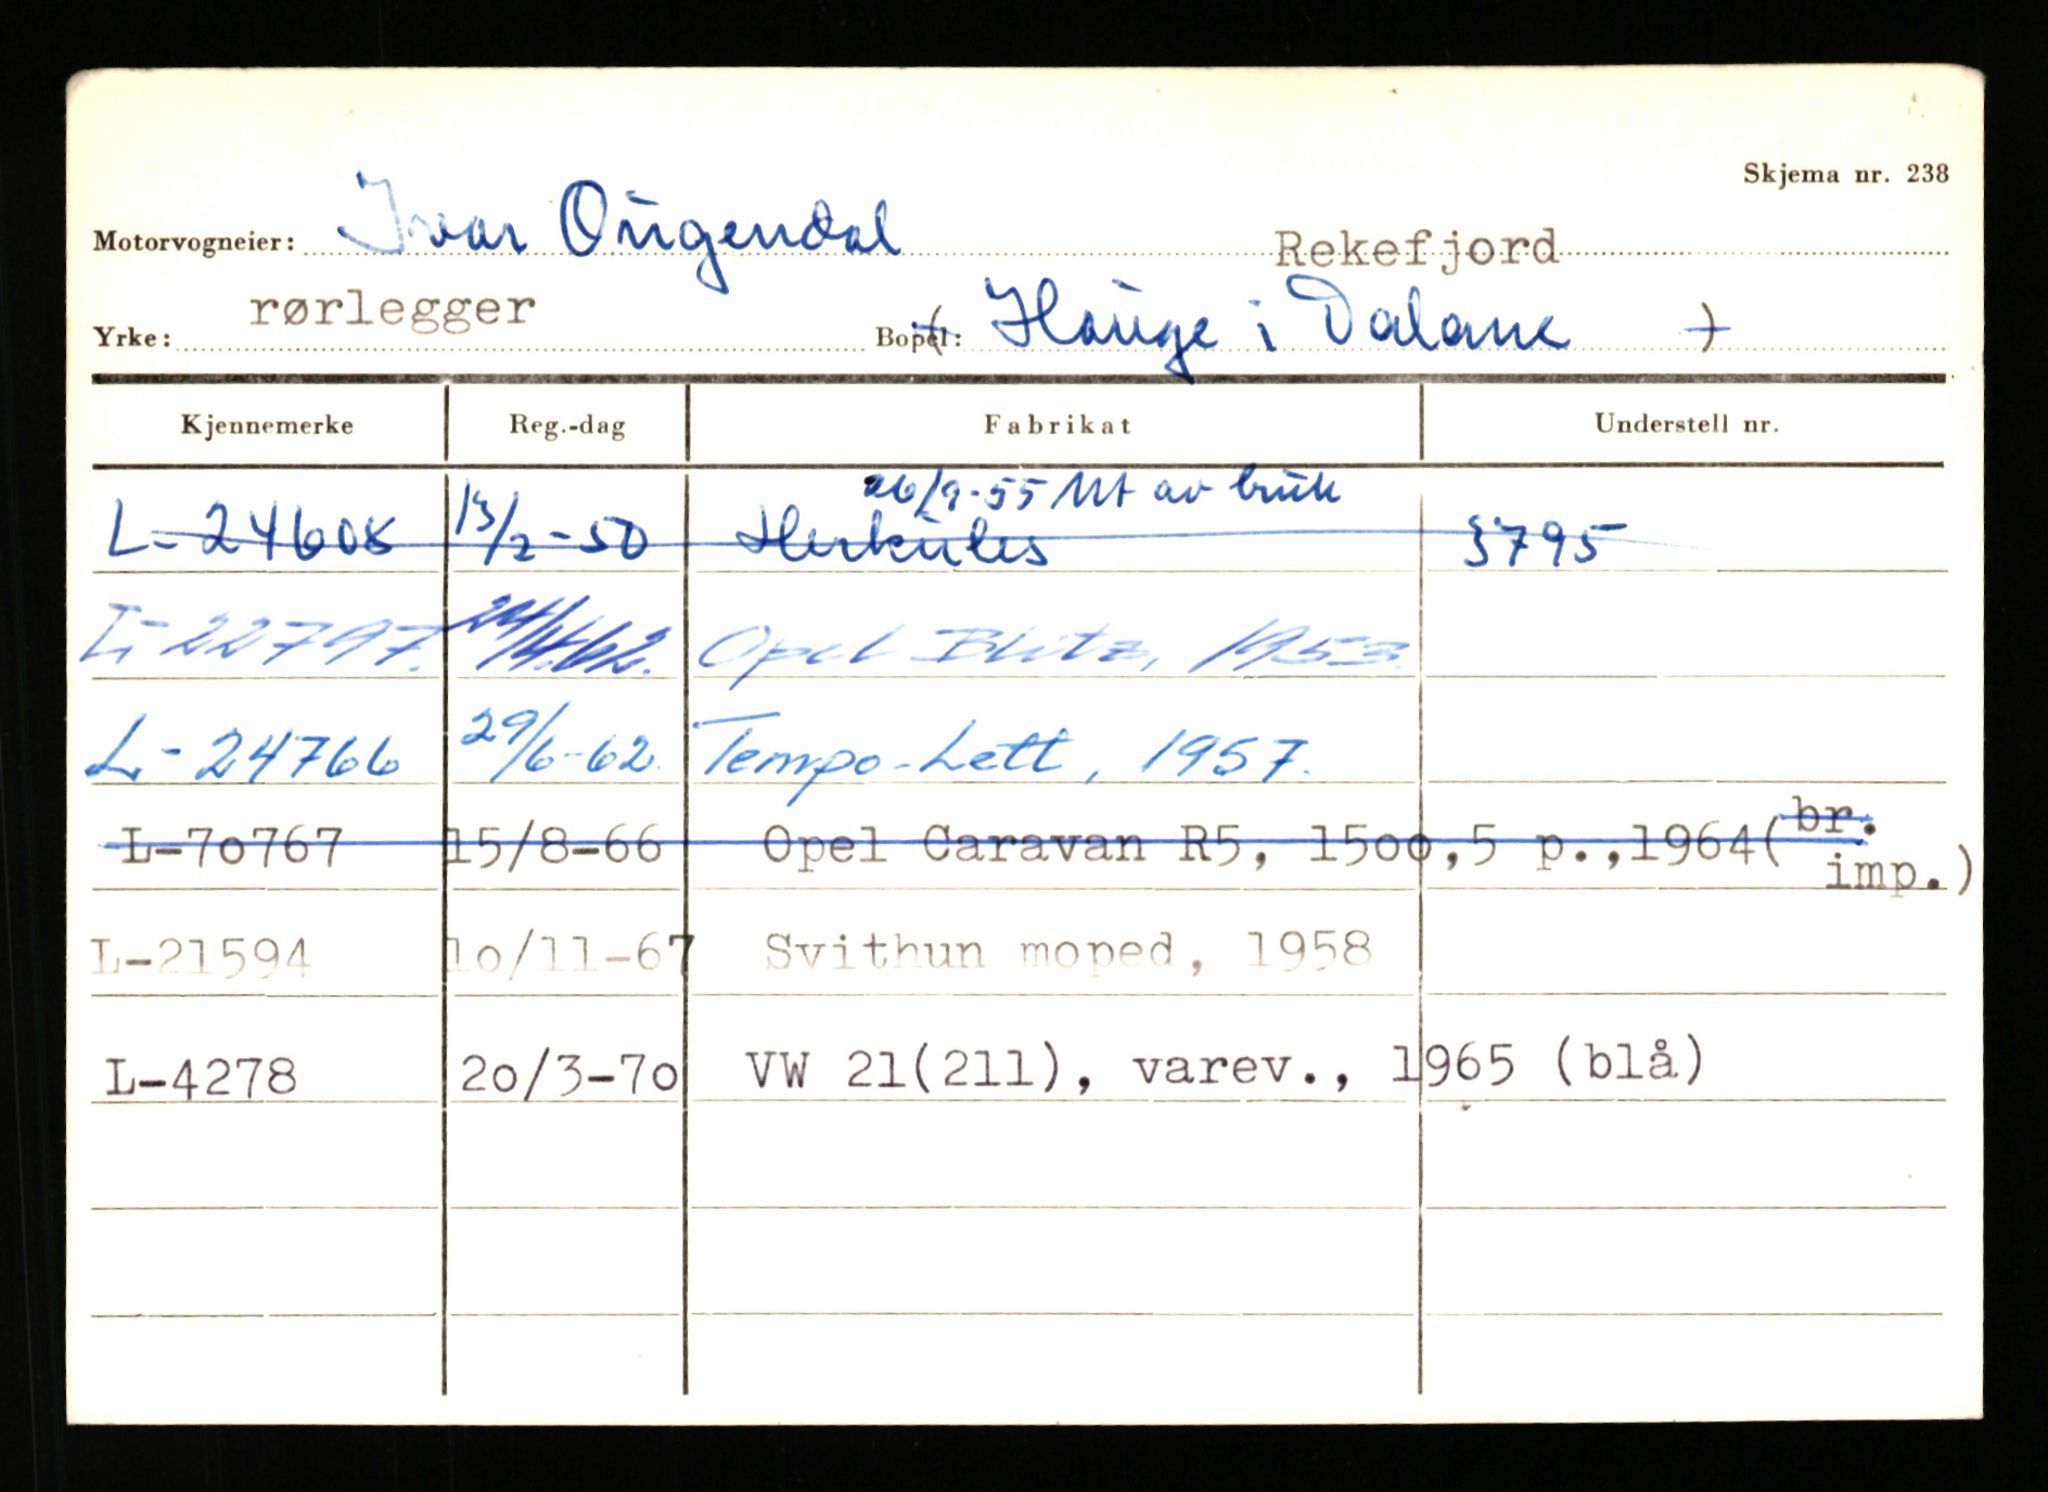 Skjema nr. 238
Motorvogneier: Ivar Ougendal Rekefjord
Yrke: rørlegger Bopel: ( Hauge i Dalane )
Kjennemerke Reg.-dag Fabrikat Understell nr.
26/9-55 Ut av bruk
L-24608 13/2-50 Herkules 3795
L-22797. 24/4.62. Opel Blitz, 1953.
L-24766 29/6-62. Tempo-Lett, 1957.
L-7o767 15/8-66 Opel Caravan R5, 15oo,5 p.,1964(br.
imp.)
L-21594 1o/11-67 Svithun moped, 1958
L-4278 2o/3-7o VW 21(211), varev., 1965 (blå)